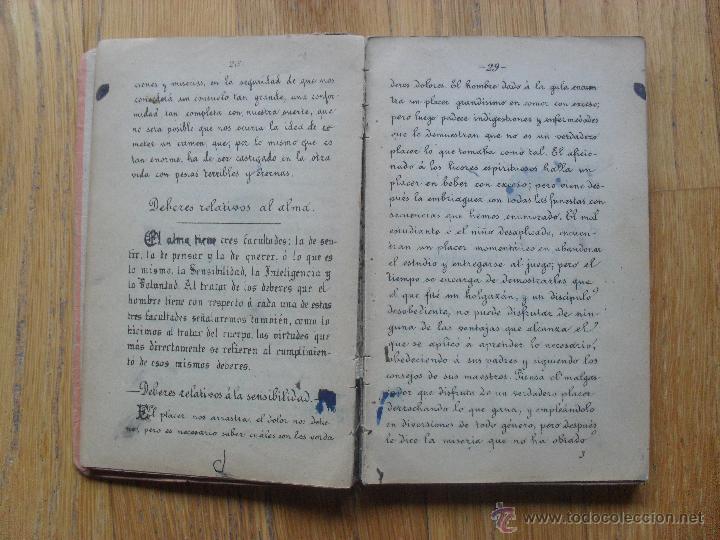 28
ciones y miserias, en la seguridad de que nos
concederá un consuelo tan grande, una confor-
midad tan completa con nuestra suerte, que
no sera posible que nos ocurra la idea de co-
meter un crimen, que, por lo mismo que es
tan enorme, ha de ser castigado en la otra
vida con penas terribles y eternas.
Deberes relativos al alma.
El alma tiene tres facultades: la de sen-
tir, la de pensar y la de querer, ó lo que es
lo mismo, la Sensibilidad, la Inteligencia y
la Voluntad. Al tratar de los deberes que el
hombre tiene con respecto á cada una de estas
tres facultades señalaremos también, como lo
hicimos al tratar del cuerpo, las virtudes que
más directamente se refieren al cumplimien-
to de esos mismos deberes.
—Deberes relativos á la sensibilidad.—
El placer nos arrastra, el dolor nos detie-
ne, pero es necesario saber cuáles son los verda
-29-
deros dolores. El hombre dado á la gula encuen-
tra un placer grandísimo en comer con exceso;
pero luego padece indigestiones y enfermedades
que le demuestran que no es un verdadero
placer lo que tomaba como tal. El aficio-
nado á los licores espirituosos halla un
placer en beber con exceso; pero viene des-
pués la embriaguez con todas las funestas con-
secuencias que hemos enumerado. El mal
estudiante ó el niño desaplicado, encuen-
dran un placer momentáneo en abandonar
el estudio y entregarse al juego; pero el
tiempo se encarga de demostrarles que
el que fué un holgazán, y un discípulo
desobediente, no puede disfrutar de nin-
guna de las ventajas que alcanza el
que se aplicó á aprender lo necesario,
obedeciendo á sus padres y siguiendo los
consejos de sus maestros. Piensa el malgas-
tador que disfruta de un verdadero placer
derrochando lo que gana, y empleándolo
en diversiones de todo género, pero después
le dice la miseria que no ha obrado
3
www.todocoleccion.net